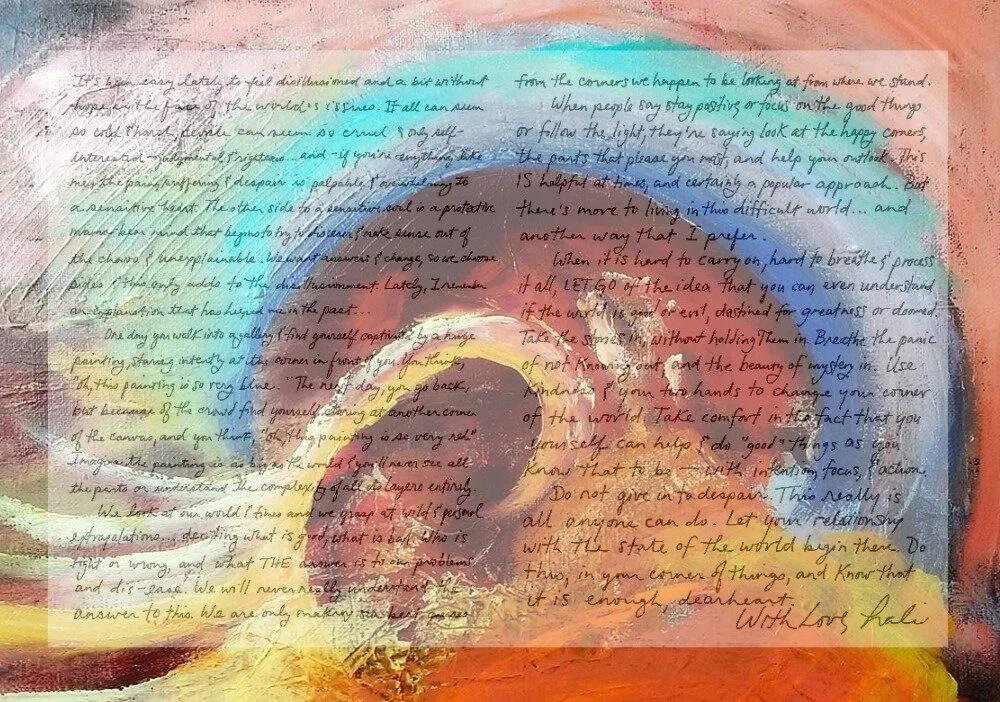 It's been easy lately to feel disillusioned and a bit without
hope in the face of the world's issues. It all can seem
so cold & hard, people can seem so cruel & only self-
interested - judgmental & righteous... and - if you're anything like
me, the pain, suffering & despair is palpable & overwhelming to
a sensitive heart. The other side to a sensitive soul is a protective
mama bear mind that begins to try to discern & make sense out of
the chaos & unexplainable. We want answers & change, so we choose
sides & this only adds to the disillusionment. Lately, I remember
an explanation that has helped me in the past...
One day you walk into a gallery & find yourself captivated by a huge
painting, staring intently at the corner in front of you. You think,
"oh, this painting is so very blue." The next day, you go back,
but because of the crowd find yourself staring at another corner
of the canvas, and you think, "oh, this painting is so very red"
Imagine the painting is as big as the world & you'll never see all
the parts or understand the complexity of all its layers entirely.
We look at our world & times and we grasp at wild & personal
extrapolations... deciding what is good, what is bad. Who is
right or wrong, and what THE answer is to our problems
and dis-ease. We will never really understand the
answer to this. We are only making
from the corners we happen to be looking at from where we stand.
When people say stay positive or focus on the good things
or follow the light, they're saying look at the happy corners,
the parts that please you most, and help your outlook. This
IS helpful at times, and certainly a popular approach. But
there's more to living in this difficult world... and
another way that I prefer.
When it is hard to carry on, hard to breathe & process
it all, LET GO of the idea that you can even understand
if the world is good or evil, destined for greatness or doomed.
Take the stories in, without holding them in. Breathe the panic
of not knowing out, and the beauty of mystery in. Use
kindness & your two hands to change your corner
of the world. Take comfort in the fact that you
yourself can help & do "good" things as you
know that to be - with intention, focus, & action.
Do not give in to despair. This really is
all anyone can do. Let your relationship
with the state of the world begin there. Do
this, in your corner of things, and know that
it is enough, dearheart.
With Love,